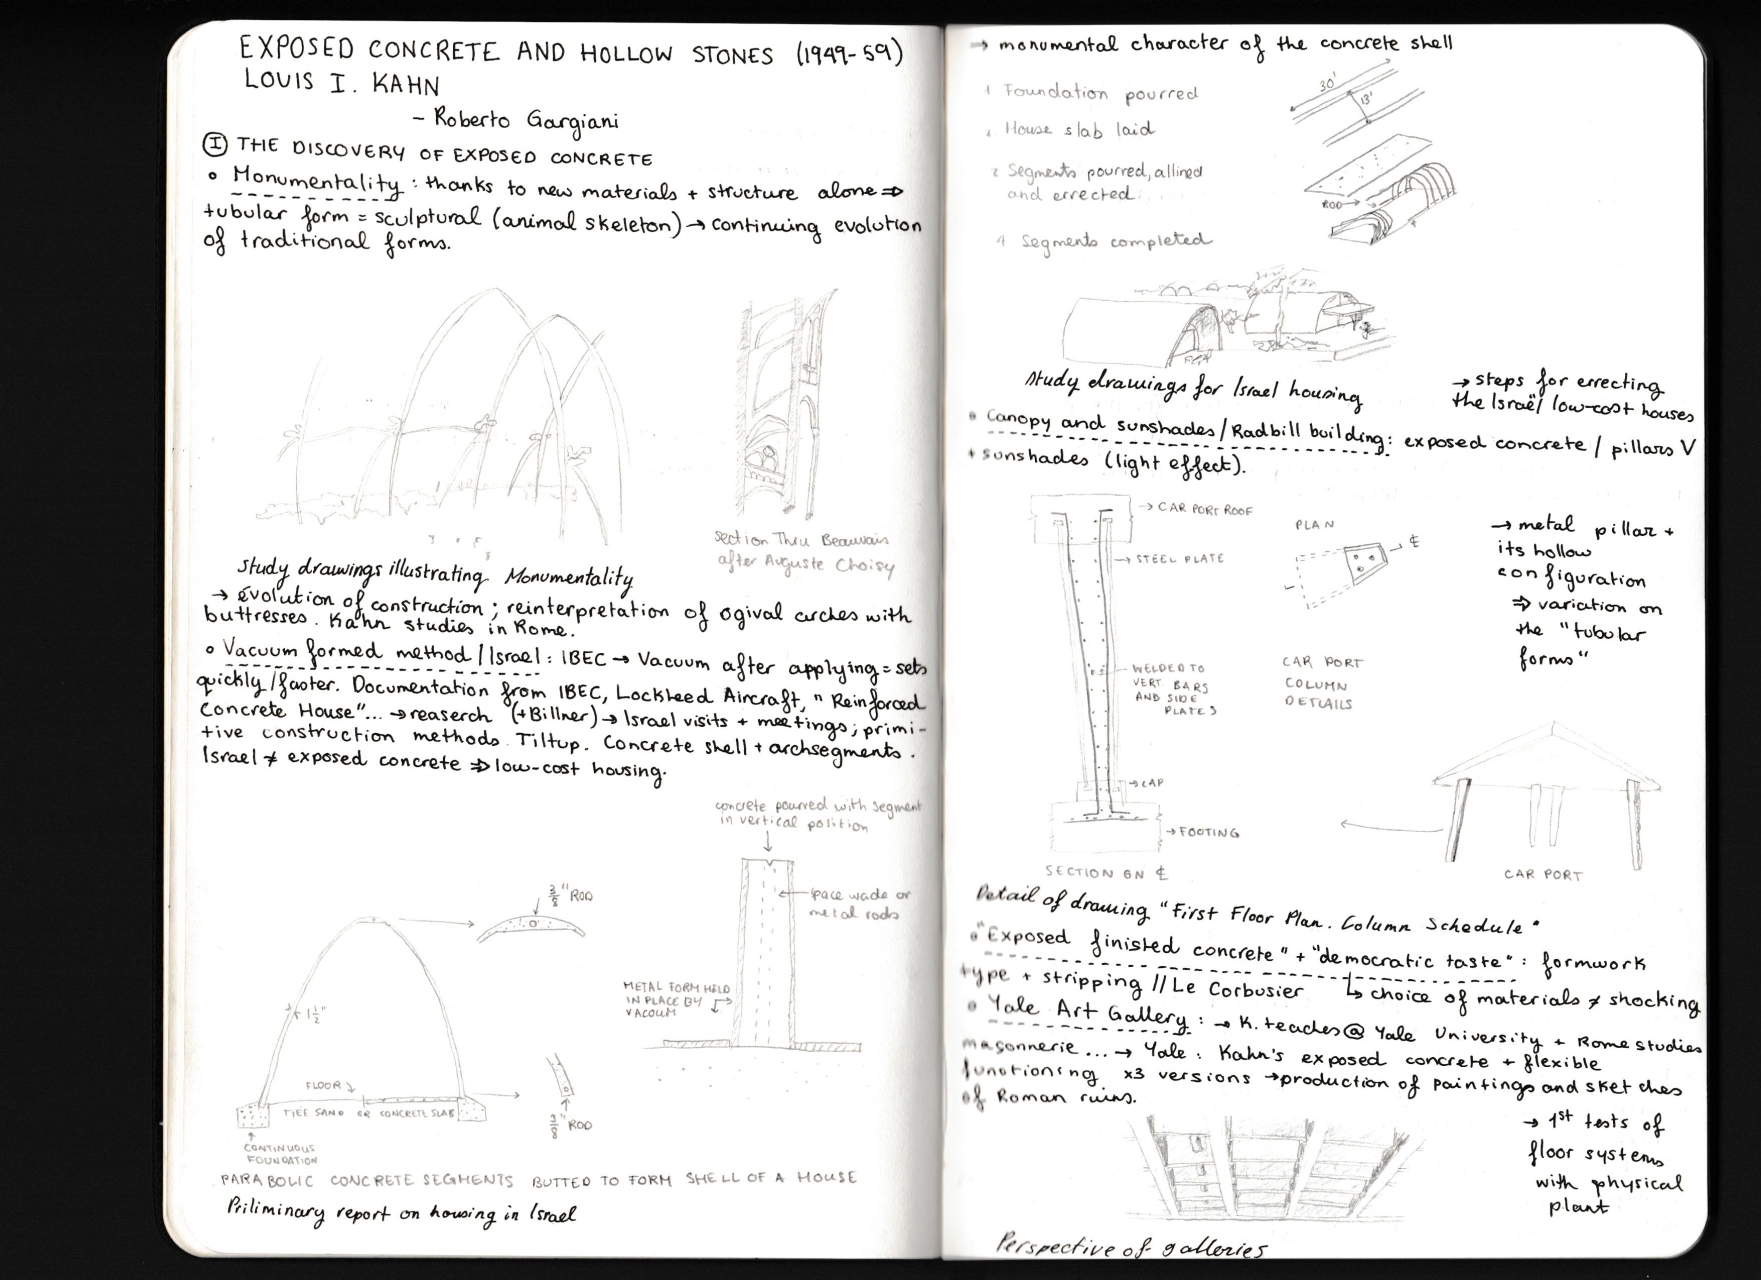 EXPOSED CONCRETE AND HOLLOW STONES (1949-59)
LOUIS I. KAHN
- Roberto Gargiani
I THE DISCOVERY OF EXPOSED CONCRETE
• Monumentality : thanks to new materials + structure alone ⇒
tubular form = sculptural (animal skeleton) → continuing evolution
of traditional forms.
section Thru Beauvais
after Auguste Choisy
Study drawings illustrating Monumentality
→ évolution of construction ; reinterpretation of ogival arches with
buttresses. Kahn studies in Rome.
• Vacuum formed method / Israel : IBEC → Vacuum after applying = sets
quickly/faster. Documentation from IBEC, Lockheed Aircraft, "Reinforced
Concrete House"... → reaserch (+Billner) → Israel visits + meetings ; primi-
tive construction methods. Tiltup. Concrete shell + archsegments.
Israel ≠ exposed concrete ⇒ low-cost housing.
concrete pourred with segment
in vertical position
space wade or
metal rods
METAL FORM HELD
IN PLACE BY
VACUUM
3/8" ROD
1 1/2"
FLOOR
TILE SAND OR CONCRETE SLAB
CONTINUOUS
FOUNDATION
3/8" ROD
PARABOLIC CONCRETE SEGMENTS BUTTED TO FORM SHELL OF A HOUSE
Priliminary report on housing in Israel
→ monumental character of the concrete shell
1 Foundation pourred
House slab laid
Segments pourred, allined
and errected
4 Segments completed
30'
13'
ROD →
Study drawings for Israel housing
→ steps for errecting
the Israël low-cost houses
• Canopy and sunshades / Radbill building : exposed concrete / pillars V
+ sunshades (light effect).
→ CAR PORT ROOF
→ STEEL PLATE
WELDED TO
VERT BARS
AND SIDE
PLATES
→ CAP
→ FOOTING
SECTION ON ℄
PLAN
℄
CAR PORT
COLUMN
DETAILS
→ metal pillar +
its hollow
configuration
⇒ variation on
the "tubular
forms"
CAR PORT
Detail of drawing "First Floor Plan. Column Schedule"
• "Exposed finished concrete" + "democratic taste" : formwork
type + stripping // Le Corbusier ↳ choice of materials ≠ shocking
• Yale Art Gallery : → K. teaches @ Yale University + Rome studies
masonnerie ... → Yale : Kahn's exposed concrete + flexible
functioning x3 versions → production of paintings and sketches
of Roman ruins.
→ 1st tests of
floor systems
with physical
plant
Perspective of galleries